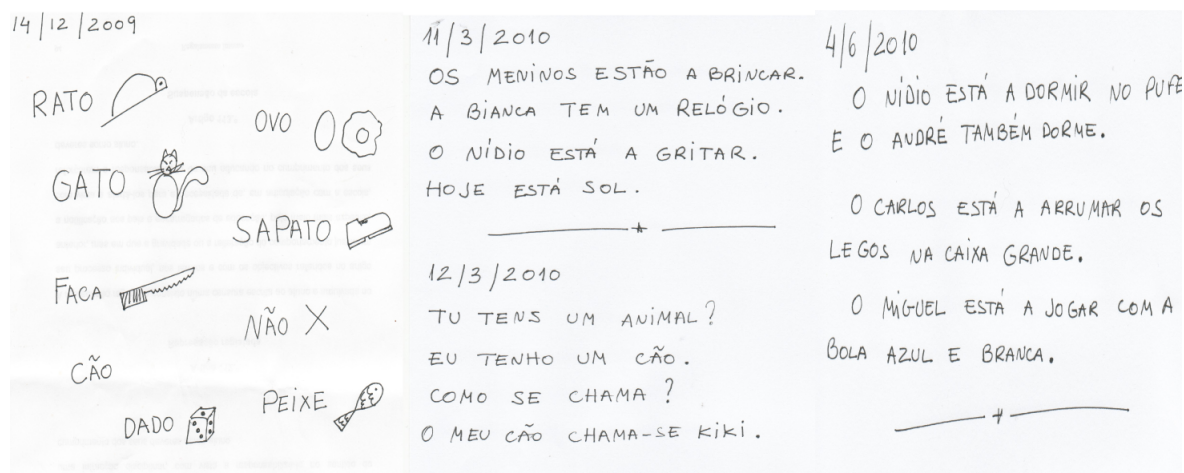 14/12/2009
RATO
OVO
GATO
SAPATO
FACA
NÃO
CÃO
PEIXE
DADO
11/3/2010
OS MENINOS ESTÃO A BRINCAR.
A BIANCA TEM UM RELÓGIO.
O NÍDIO ESTÁ A GRITAR.
HOJE ESTÁ SOL.
12/3/2010
TU TENS UM ANIMAL?
EU TENHO UM CÃO.
COMO SE CHAMA?
O MEU CÃO CHAMA-SE KIKI.
4/6/2010
O NÍDIO ESTÁ A DORMIR NO PUFE
E O ANDRÉ TAMBÉM DORME.
O CARLOS ESTÁ A ARRUMAR OS
LEGOS NA CAIXA GRANDE.
O MIGUEL ESTÁ A JOGAR COM A
BOLA AZUL E BRANCA.